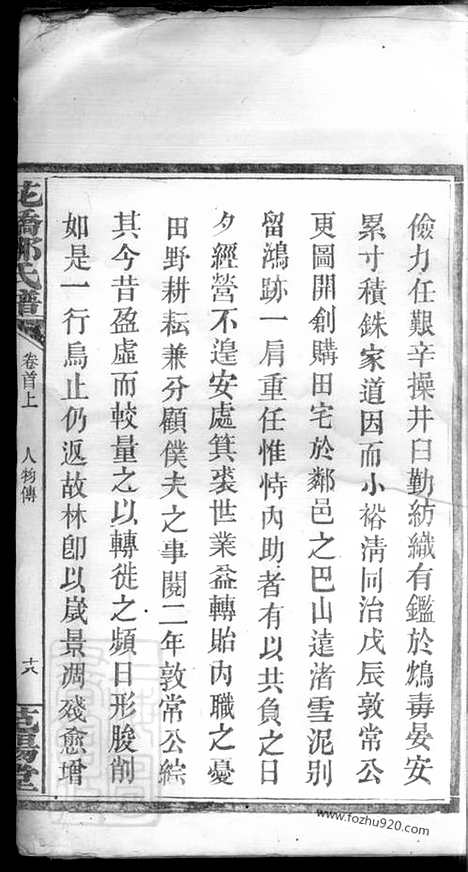 儉力任艱辛操井臼勤紡織有鑑於鴆毒晏安
累寸積銖家道因而小裕清同治戊辰敦常公
更圖開創購田宅於鄰邑之巴山遠渚雪泥別
留鴻跡一肩重任惟恃內助者有以共負之日
夕經營不遑安處箕裘世業益轉貽內職之憂
田野耕耘兼分顧僕夫之事閱二年敦常公綜
其今昔盈虛而較量之以轉徙之頻日形朘削
如是一行鳥止仍返故林卽以歲景凋殘愈增
花橋鄒氏譜
卷首上
人物傳
十八
范陽堂
www.fozhu920.com